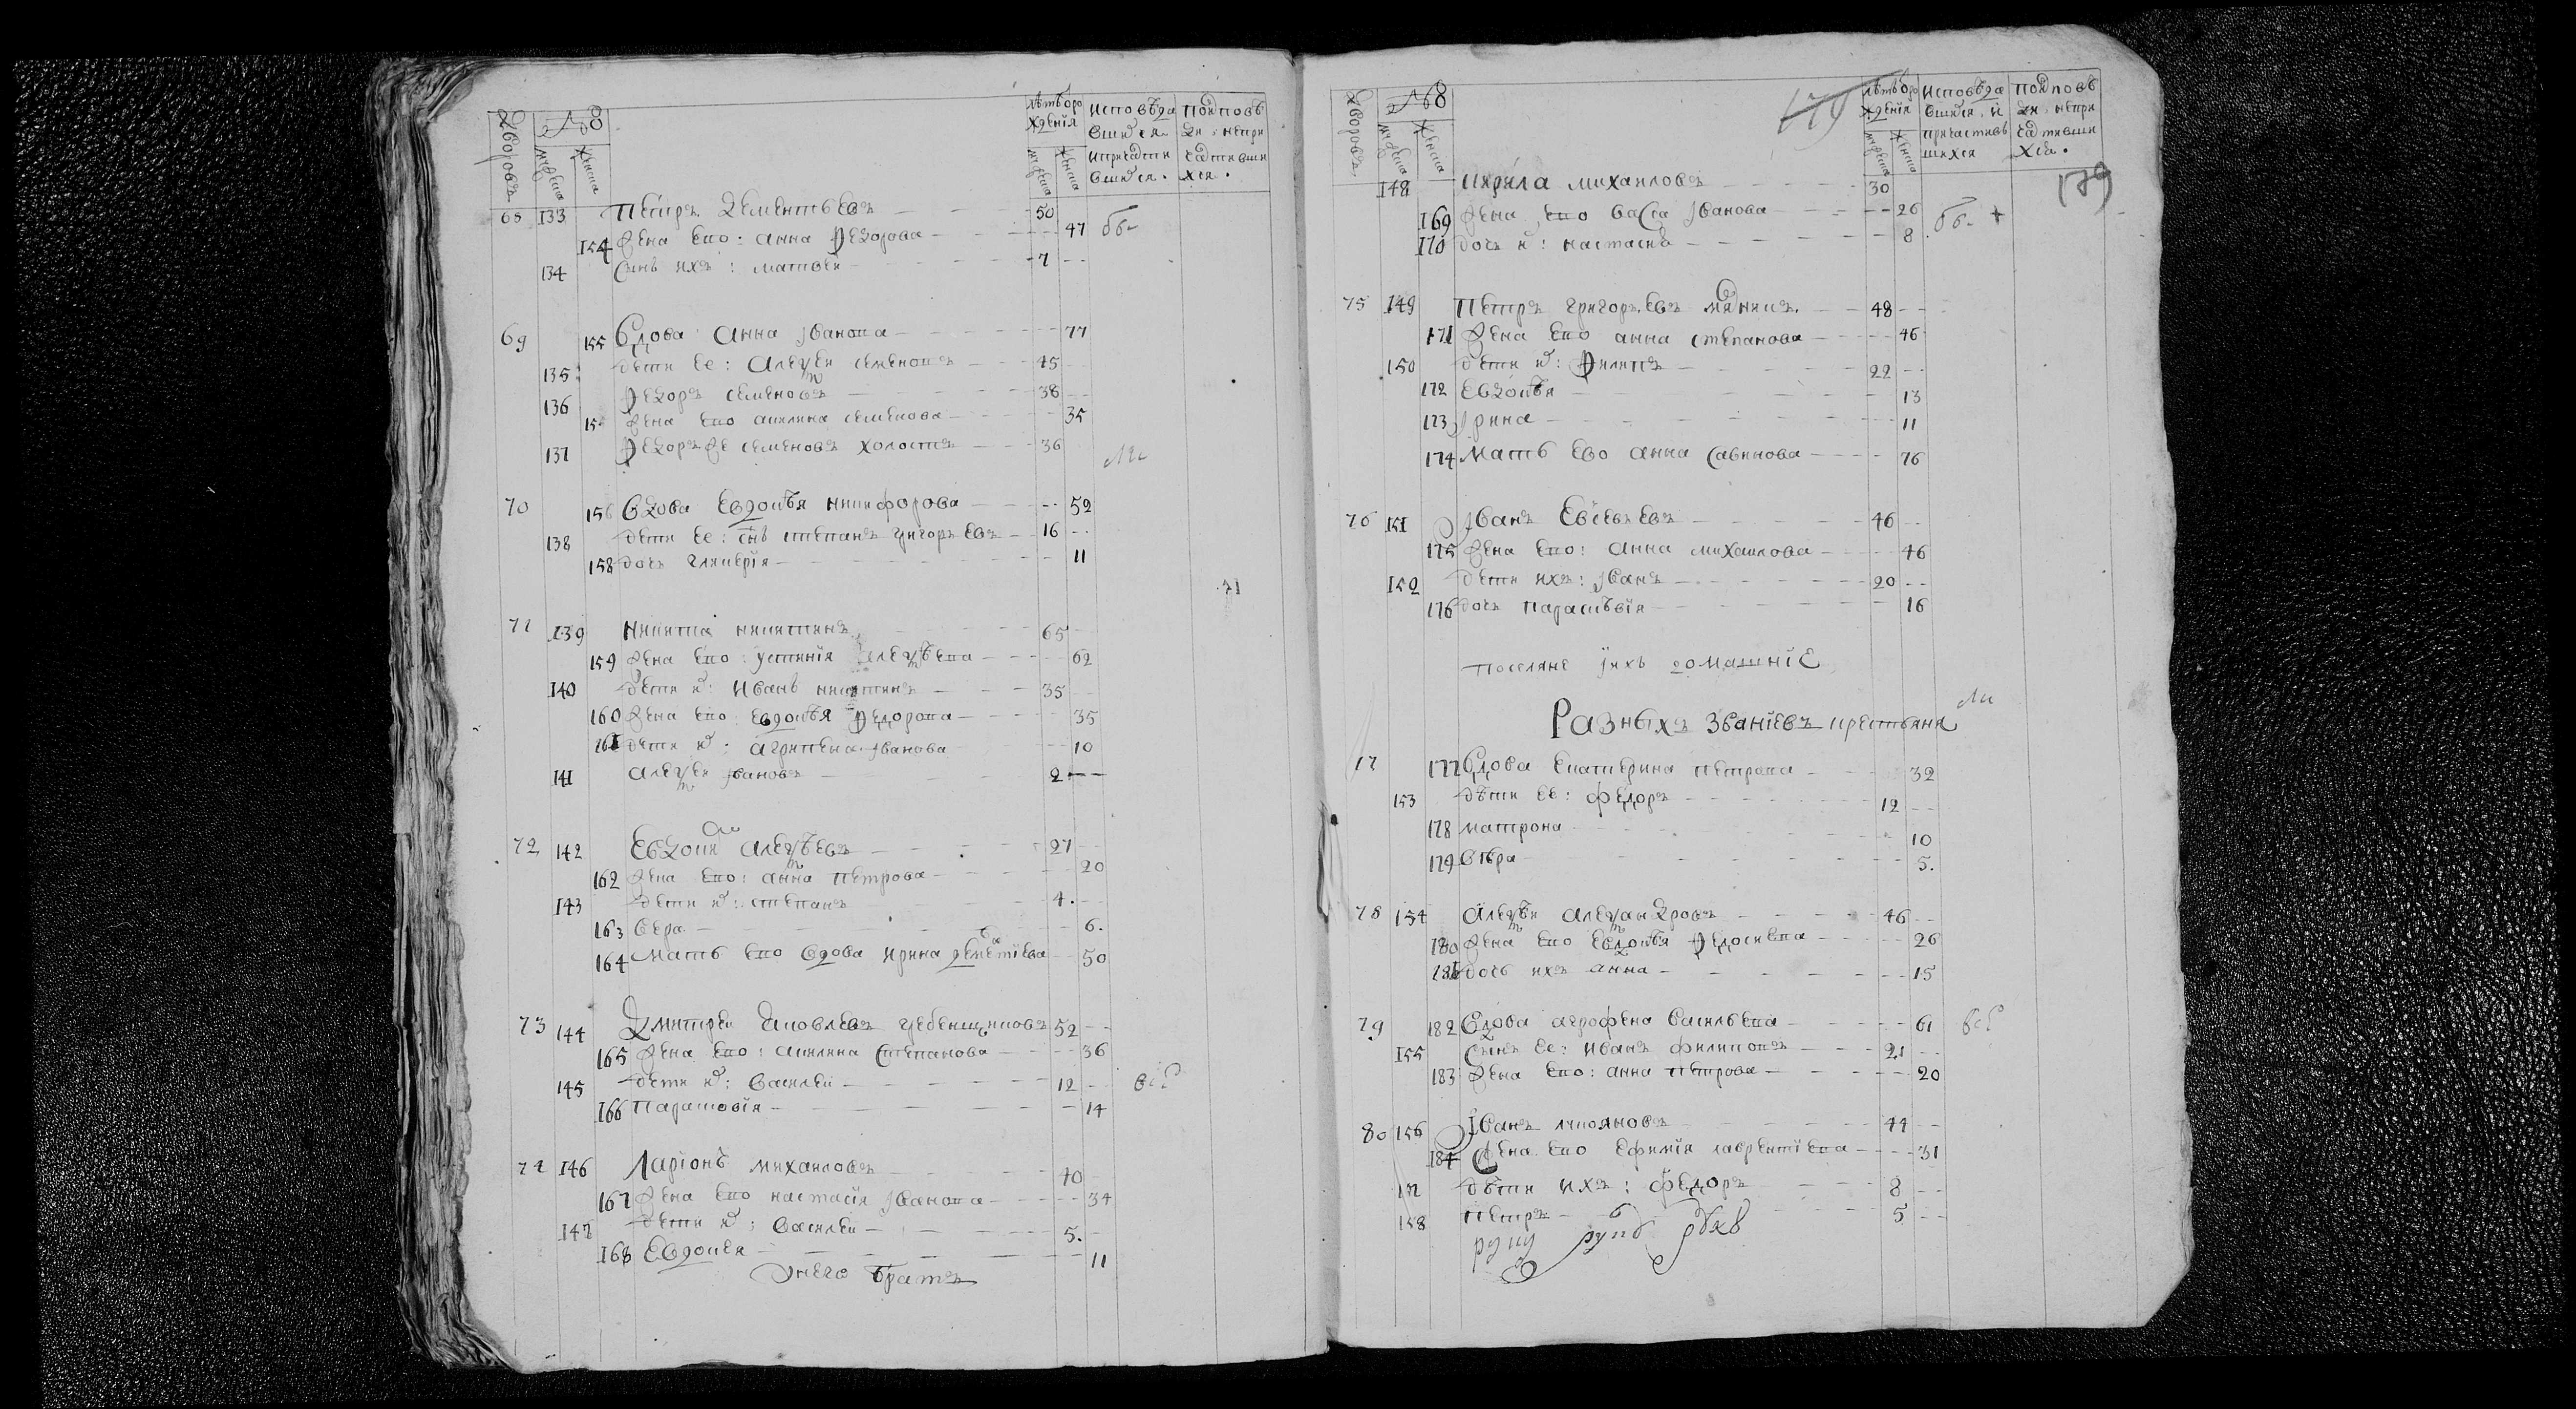 Дворовъ № мужеска женска лѣтъ от рождения мужеска женска исповѣдавшихся и причастившихся. токмо исповѣд: непричастившихся.
68 133 Петръ Дементьевъ 50
154 жена ево: анна Федорова 47
134 сынъ ихъ: матвѣй 7
69 155 Вдова анна Иванова 77
135 дети ее: алеѯеи семеновъ 45
136 Федоръ семеновъ 38
жена ево акилина семенова 35
137 Федоръ же семеновъ холостъ 36
70 156 Вдова Евдокѣя никифорова 52
138 дети ее: снъ степанъ григорьевъ 16
158 дочь гликерїя 11
71 139 никита никитинъ 65
159 жена ево: устинїя алеѯѣева 62
140 дети их: Иванъ никитинъ 35
160 жена ево: евдокѣя Федорова 35
161 дети их: агрипена Иванова 10
141 алеѯеи Ивановъ 2
72 142 Евдоки алеѯѣевъ 27
162 жена ево: анна петрова 20
143 дети их: степанъ 4.
163 вера 6.
164 мать ево вдова ирина деметїева 50
73 144 Дмитреи Яковлевъ гребенщиковъ 52
165 жена ево: акилина степанова 36
145 дети их: василеи 12
166 парасковїя 14
74 146 Ларїонъ михаиловъ 40
167 жена ево настасїя Иванова 34
147 дети их: василеи 5.
168 Евдокея 11
у него братъ
Дворовъ № мужеска женска лѣтъ от рождения мужеска женска исповѣдавшихся, и причастившихся токмо исповѣд: непричастившихся.
179
179
148 кирила михаиловъ 30
169 жена ево васса Иванова 26
170 дочь их: настасиа 8
75 149 Петръ григорьевъ 48
171 жена ево анна степанова 46
150 дети их: Филипъ 22
172 Евдокѣя 13
173 Ирина 11
174 мать ево анна савинова 76
76 151 Иванъ Евсевьевъ 46
175 жена ево: анна михаилова 46
152 дети ихъ: Иванъ 20
176 дочь парасковїя 16
поселяне ихъ домашнїе
Разныхъ званїевъ крестьяня
77 177 вдова екатерина петрова 32
153 дѣти ее: федоръ 12
178 матрона 10
179 вѣра 5.
78 154 алеѯѣи алеѯандровъ 46
180 жена ево евдокѣя Федосиева 26
181 дочь ихъ анна 15
79 182 Вдова агрофена васильева 61
155 сынъ ее: иванъ филиповъ 21
183 жена ево: анна петрова 20
80 156 Иванъ лукояновъ 44
184 жена ево ефимїя лаврентїева 31
157 дѣти ихъ: федоръ 8
158 петръ 5